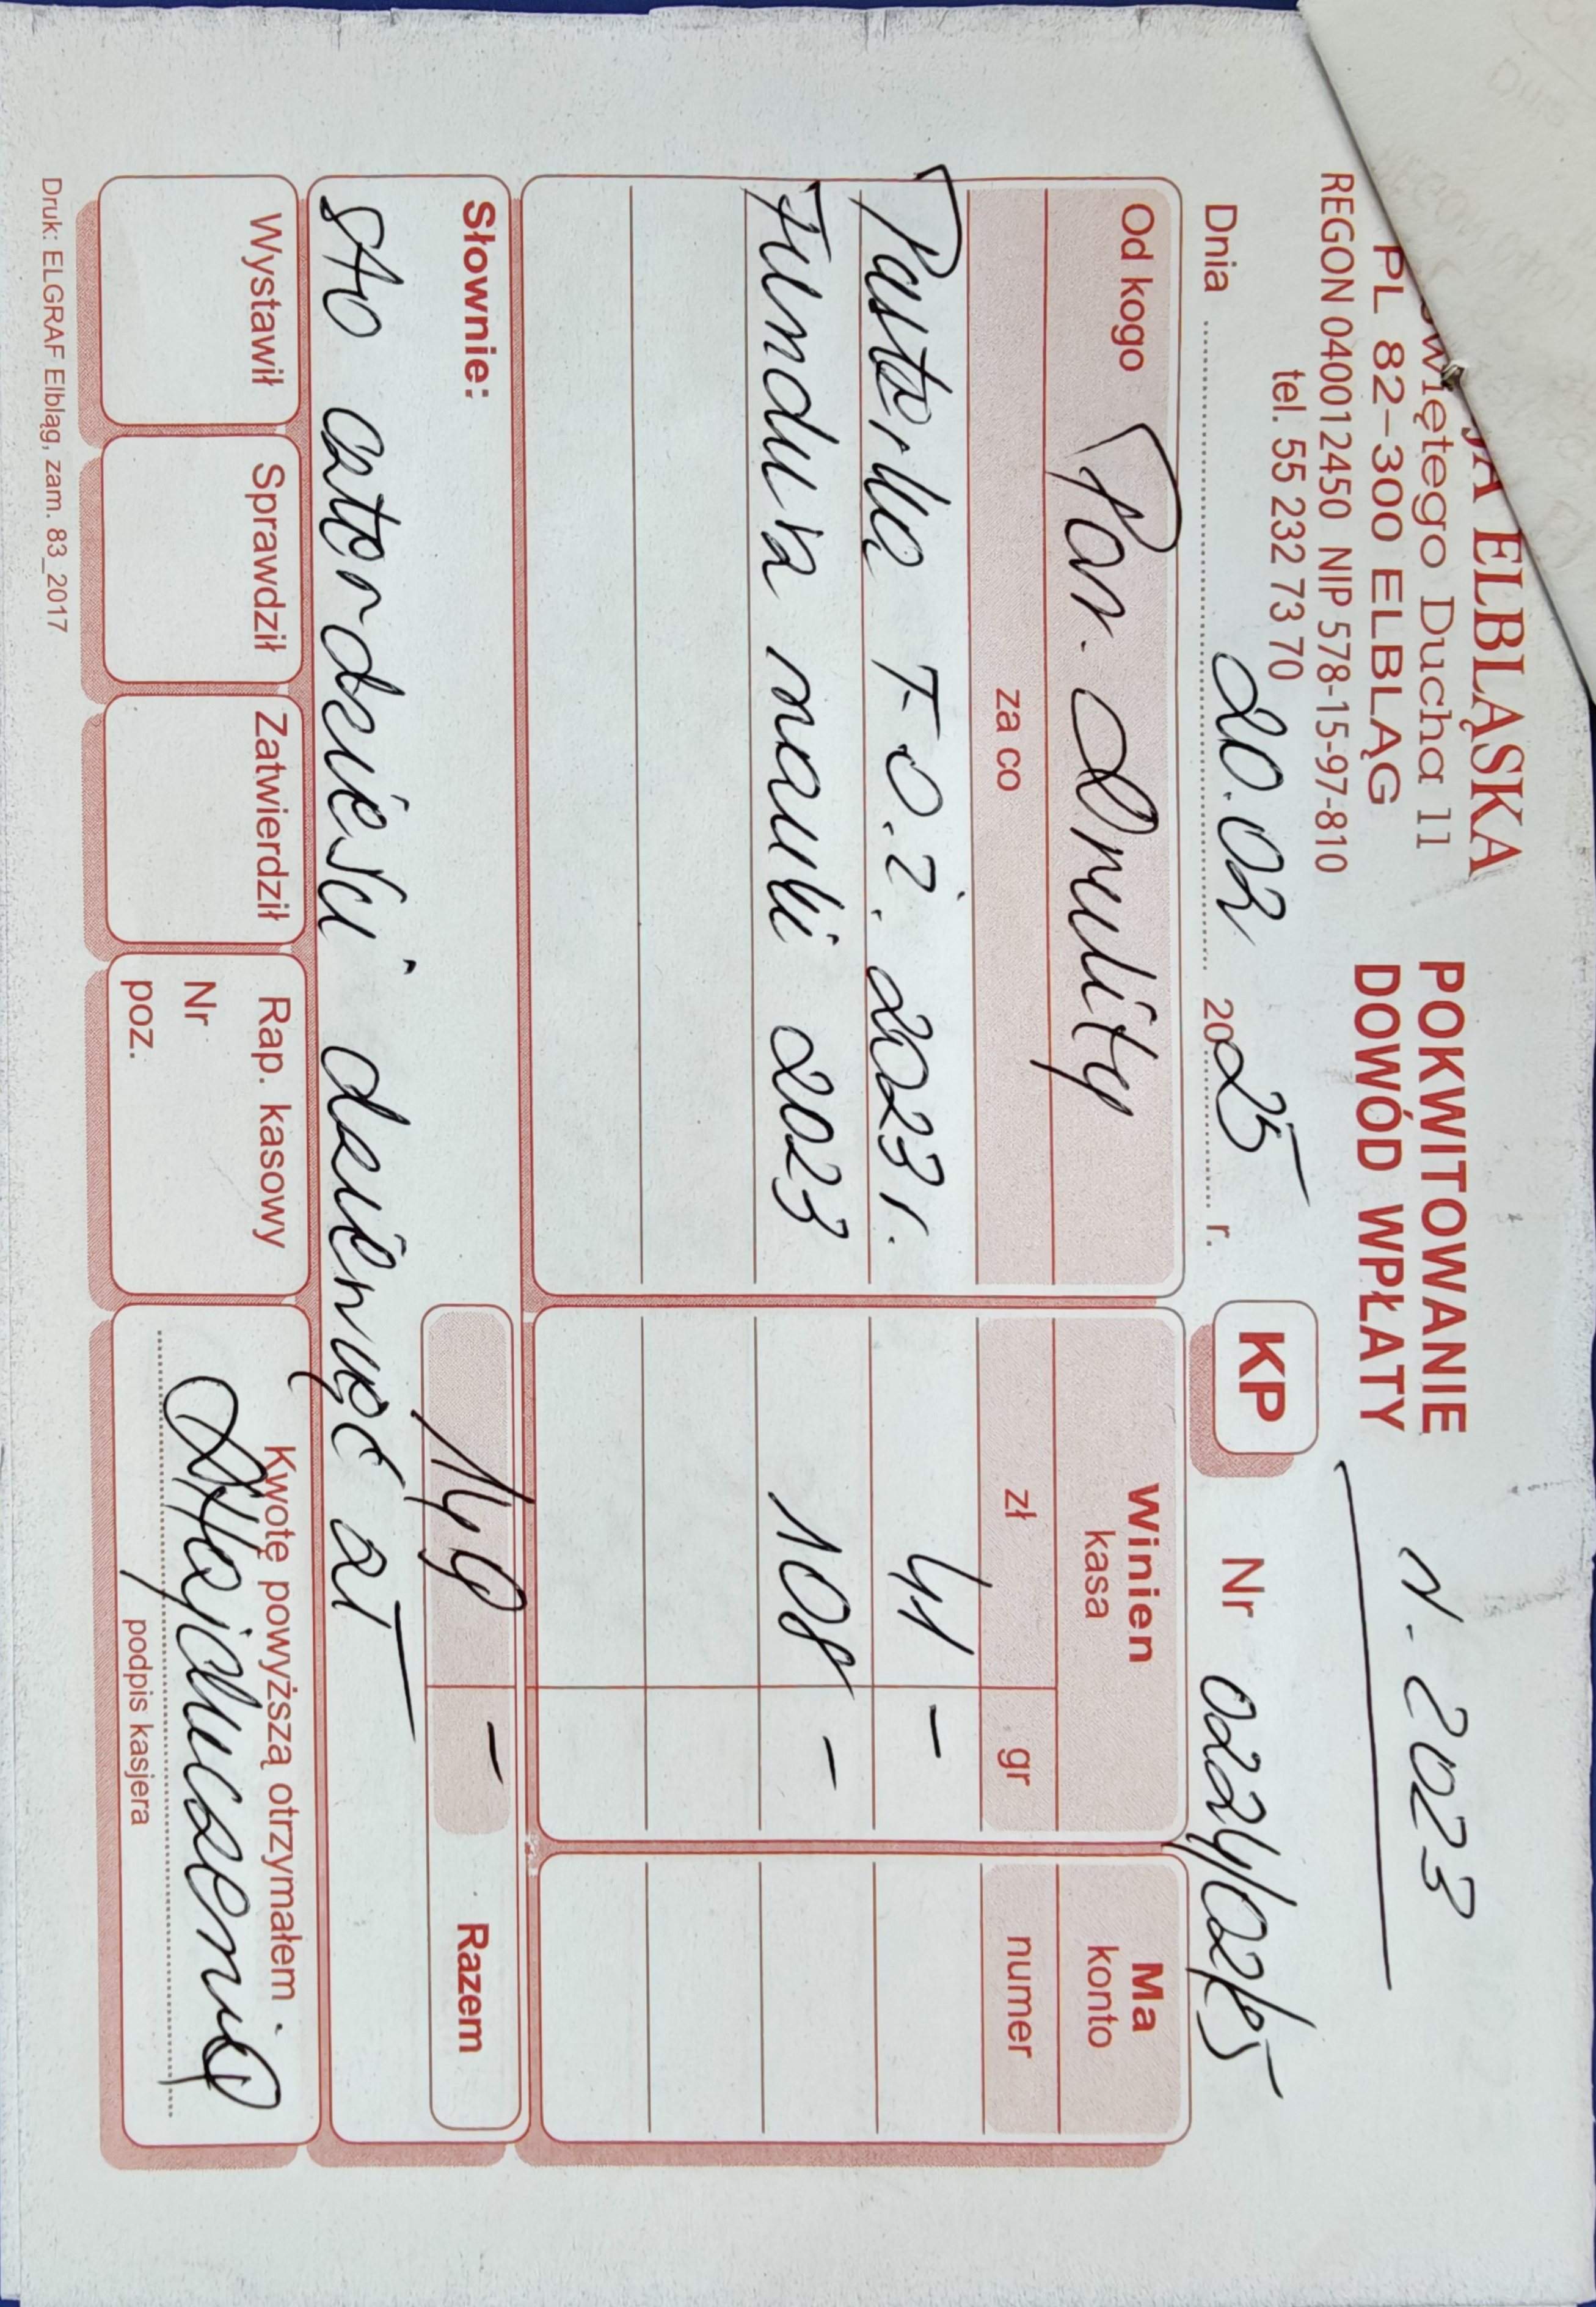 JA ELBLĄSKA
Świętego Ducha 11
PL 82-300 ELBLĄG
REGON 040012450 NIP 578-15-97-810
tel. 55 232 73 70
POKWITOWANIE
DOWÓD WPŁATY
N. 2023
Dnia 20.02 2025 r.
KP
Nr 0224/02/25
Od kogo Par. Drulity
za co
Winien
kasa
zł gr
Ma
konto
numer
Pasterka F.O.Ż. 2023 r. 41 -
Fundusz nauki 2023 108 -
Słownie:
149 - Razem
sto czterdzieści dziewięć zł
Wystawił
Sprawdził
Zatwierdził
Rap. kasowy
Nr
poz.
Kwotę powyższą otrzymałem
podpis kasjera
Druk: ELGRAF Elbląg, zam. 83_2017